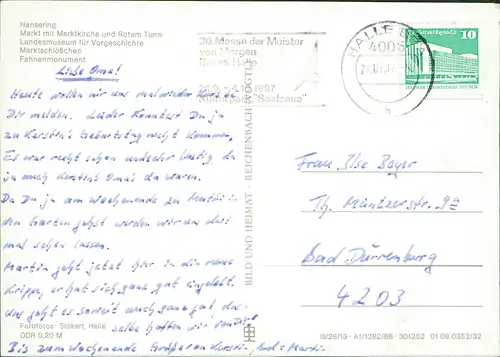 Hansering
Markt mit Marktkirche und Rotem Turm
Landesmuseum für Vorgeschichte
Marktschlößchen
Fahnenmonument
Liebe Oma!
Heute wollen wir uns mal wieder bei
Dir melden. Leider konntest Du ja
zu Kerstin's Geburtstag nicht kommen,
Es war recht schön und sehr lustig, da
ja auch Kerstin's Oma's da waren.
Da Du ja am Wochenende zu
den Garten gehst werden wir uns dort
mal sehen lassen.
Martin geht jetzt hier in die neue
Krippe, er hat sich ganz gut eingelebt.
Uns geht es soweit auch ganz gut, das-
selbe hoffen wir von Dir!
Bis zum Wochenende Grüßen Kerstin, und Martin
Farbfotos: Sickert, Halle
DDR 0,20 M
BILD UND HEIMAT · REICHENBACH (VOGTL)
30. Messe der Meister
von Morgen
Bezirk Halle
1987
Kulturpark "Saaleaue"
HALLE
4005
b
10
Frau Ilse Beyer
Th. Müntzerstr. 9a
Bad Dürrenburg
4203
III/26/13 · A1/1282/86 · 301282 01 08 0352/32